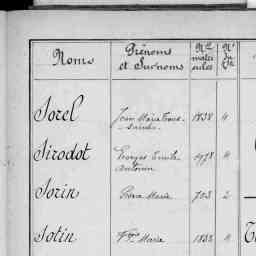 Noms
Prénoms
et Surnoms
Nos
matri
cules
Nos
Sorel
Jean Marie Franç
1838 4
Sirodot
Georges Emile
Antonin
1978 4
Sorin
Pierre Marie
703 2
Sotin
Fçois Marie
1832 4